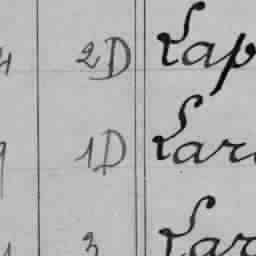 2D Lap
1D Lar
3 Lar